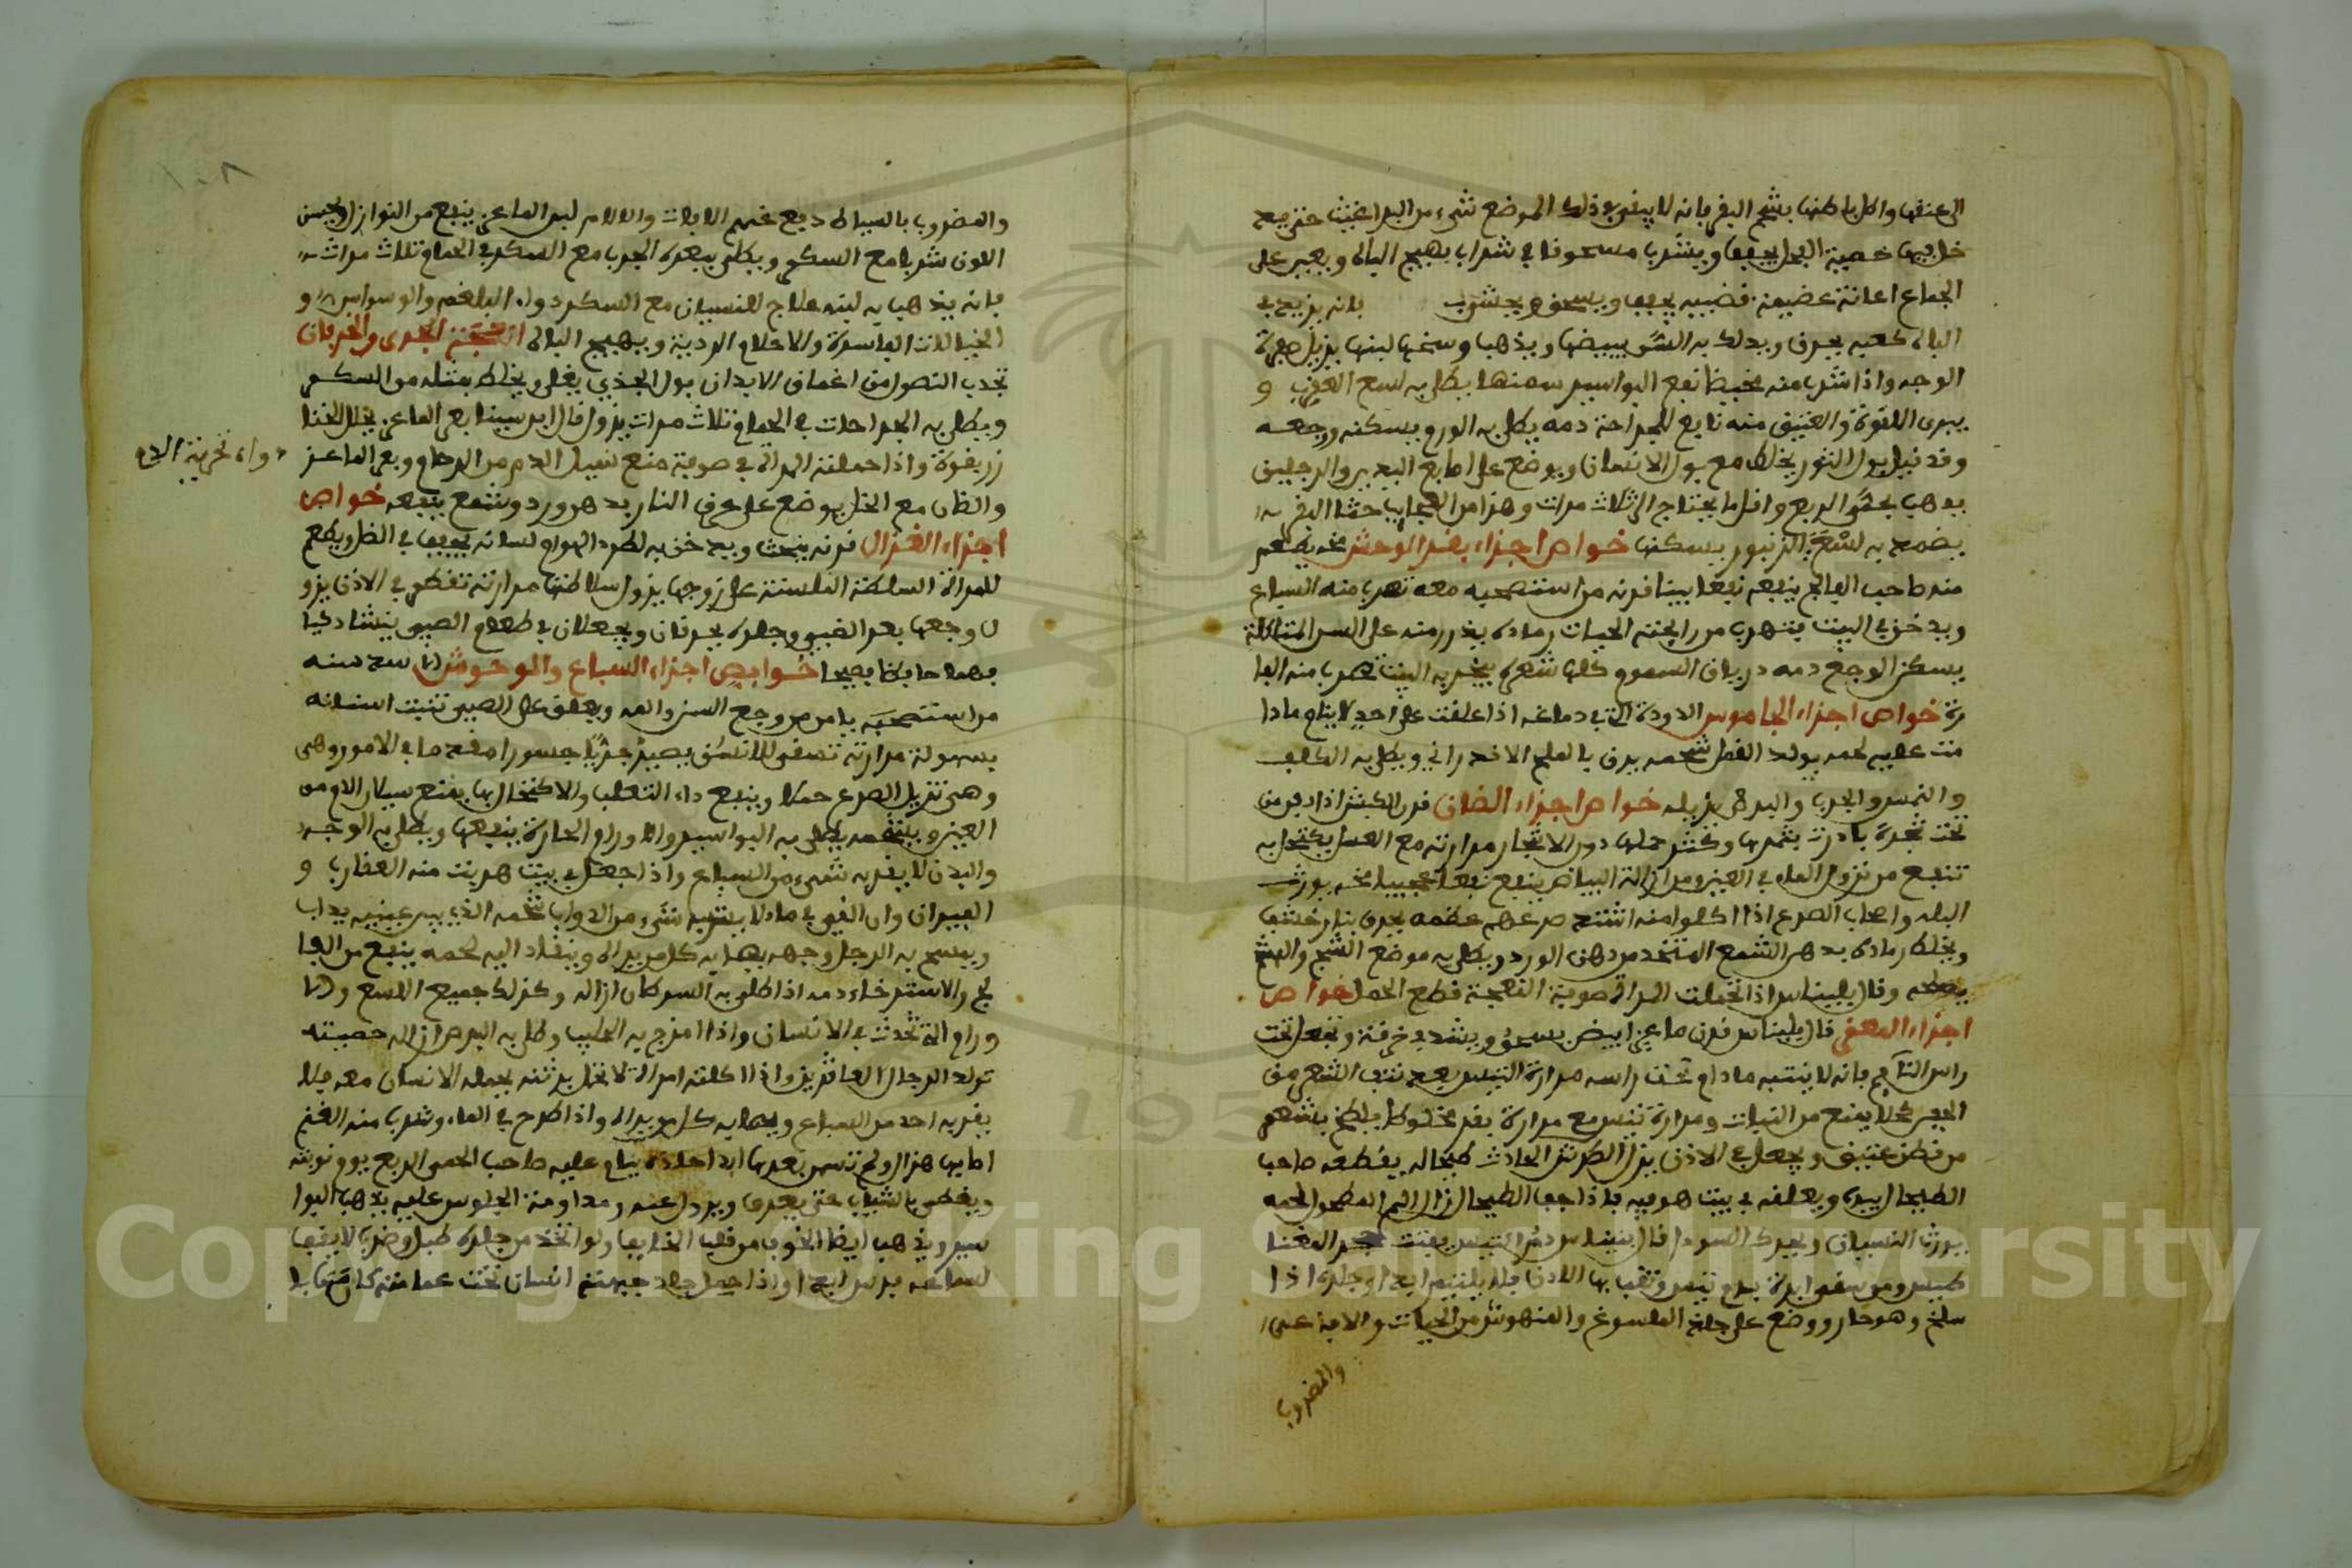 الى عنقها واطلى باطنها بشحم البقر فانه لا يبقى في ذلك الموضع شيء من البراغيث حتى يدخل
خل فيها خصية العجل تجفف ويشرب مسحوقا في شراب يهيج الباه ويعين على
الجماع اعانة عضيمة قضيبه يجفف ويسحق ويشرب فانه يزيد في
الباه كعبه يحرق ويدلك به السن يبيضها ويذهب وسخها لبنها يزيل صفرة
الوجه واذا شرب منه مخيضا نفع البواسير سمنها يطلى به لسع العقرب و
يبرى اللقوة والعتيق منه نافع للجراحة دمه يطلى به الورم ويسكنه وجعه
وقد قيل بول الثور يخلط مع بول الانسان ويوضع على اصابع اليدين والرجلين
يذهب بحمى الربع واقل ما يحتاج الى ثلاث مرات وهذا من العجايب حثا البقر
يضمد به لسع الزنبور يسكنها خواص اجزاء بقر الوحش مخه يطعم
منه صاحب الفالج ينفعه نفعا بينا قرنه من استصحبه معه تهرب منه السباع
ويدخن في البيت يتهرب من رايحته الحيات رماده يذر منه على السن المتاكلة
يسكن الوجع دمه درياق السموم كلها شعره يبخر به البيت تهرب منه الفا
رة خواص اجزاء الجاموس الدودة التي في دماغه اذا علقت على احد لا ينام ما دا
مت عليه لحمه يولد القمل شحمه يدق بالملح الاندراني ويطلى به الكلف
والنمس والجرب والبرص يزيله خواص اجزاء الضان قرن الكبش اذا دفن
تحت شجرة بادرت بثمرها وكثر حملها دون الاشجار مرارته مع العسل يكتحل به
تنفع من نزول الماء في العين ومن ازالة البياض ينفع نفعا عجيبا مخه يورث
البله واصحاب الصرع اذا اكلوا منه اشتد صرعهم عظمه يحرق بنار خشب
ويخلط رماده بدهن الشمع المتخذ من دهن الورد ويطلى به موضع الشج والهشم
يصلحه وقال بليناس اذا تحملت المراة صوفة النعجة قطع الحمل خواص
اجزاء المعز قال بليناس قرن ماعز ابيض يسحق ويشد في خرقة وتجعل تحت
راس النايم فانه لا ينتبه ما دام تحت راسه مرارة التيس بعد نتف الشعر من
الجفن تحلا يمنع من النبات ومرارة تيس مع مرارة بقر مخلوطا يلطخ بشحم
من قطن عتيق ويجعل في الاذن يزل الطرش الحادث طحاله يقطعه صاحب
الطحال بيده ويعلقه في بيت هو فيه فاذا جف الطحال زال الم المطحول لحمه
يورث النسيان ويحرك السودا قال بليناس دم التيس يفتت حجر المغنا
طيس ومن سقى ابرة بدم تيس وثقب بها الاذن فلا يلتئم ابدا جلده اذا
سلخ وهو حار ووضع على جلد الملسوع والمنهوش من الحيات والافاعي
والمضروب
١٠٨
والمضروب بالسياط دفع عنهم الافات والالام لبن الماعز ينفع من النوازل ويحسن
اللون شربا مع السكر ويطلى ببعره الجرب مع السكر في الحمام ثلاث مرات
فانه يذهب به لبنه علاج للنسيان مع السكر دواء البلغم والوسواس و
الخيالات الفاسدة والاحلام الردية ويهيج الباه انفحة الجدي والخرفان
تجذب النصول من اعماق الابدان بول الجدي يغلى ويخلط بمثله من السكر
ويطلى به الجراحات في الحمام ثلاث مرات يزول قال ابن سينا بعر الماعز يحلل الخنا
زير بقوة واذا حملته المراة في صوفة منع سيل الدم من الرحام وبعر الماعز
دواء نحرية الدم
والضان مع الخل يوضع على حرق النار بدهن ورد وشمع ينفعه خواص
اجزاء الغزال قرنه ينحت ويدخن به لطرد الهوام لسانه يجفف في الظل ويطعم
للمراة السلطة اللسنة على زوجها يزول سلاطتها مرارته تقطر في الاذن يزو
ل وجعها بعر الظبي وجلده يحرقان ويجعلان في طعام الصبي ينشا ذكيا
فهما حافظا فصيحا خواص اجزاء السباع والوحوش سنه
من استصحبه يامن من وجع السن والفم ويعلق على الصبي تنبت اسنانه
بسهولة مرارته تسقى للانسان يصير جريا جسورا مقدما في الامور وهي
وهي تزيل الصرع حملا وينفع داء الثعلب والاكتحال بها يمنع سيلان الدم من
العين ويشحمه يطلى به البواسير والاورام الحارة ينفعها ويطلى به الوجه
والبدن لا يقربه شيء من السباع واذا جعل في بيت هربت منه العقارب و
الفيران وان القي في ماء لا يشربه شيء من الدواب شحمه الذي بين عينيه يذاب
ويمسح به الرجل وجهه يهابه كل من يراه وينقاد اليه لحمه ينفع من الفا
لج والاسترخاء دمه اذا طلى به السرطان ازاله وكذلك جميع اللسع والا
ورام التي تحدث في الانسان واذا مزج به الحليب وطلى به البرص ازاله خصيته
تولد الرجال العاقر واذا اكلته امراة لا تحل برثنه يحمله الانسان معه فلا
يقربه احد من السباع ويهابه كل من يراه واذا طرح في الماء وشرب منه الغنم
اصابها هزال ولم تسمن بعدها ابدا جلده ينام عليه صاحب الحمى الربع يوم نوبته
ويغطى بالثياب حتى يعرق ويزول عنه ومداومة الجلوس عليه يذهب البوا
سير ويذهب ايضا الخوف من قلب الخايف ولو اتخذ من جلده طبل وضرب لا يقف
لسماعه فرس ابدا واذا حمل جلد جبهته انسان تحت عمامته كان مهابا